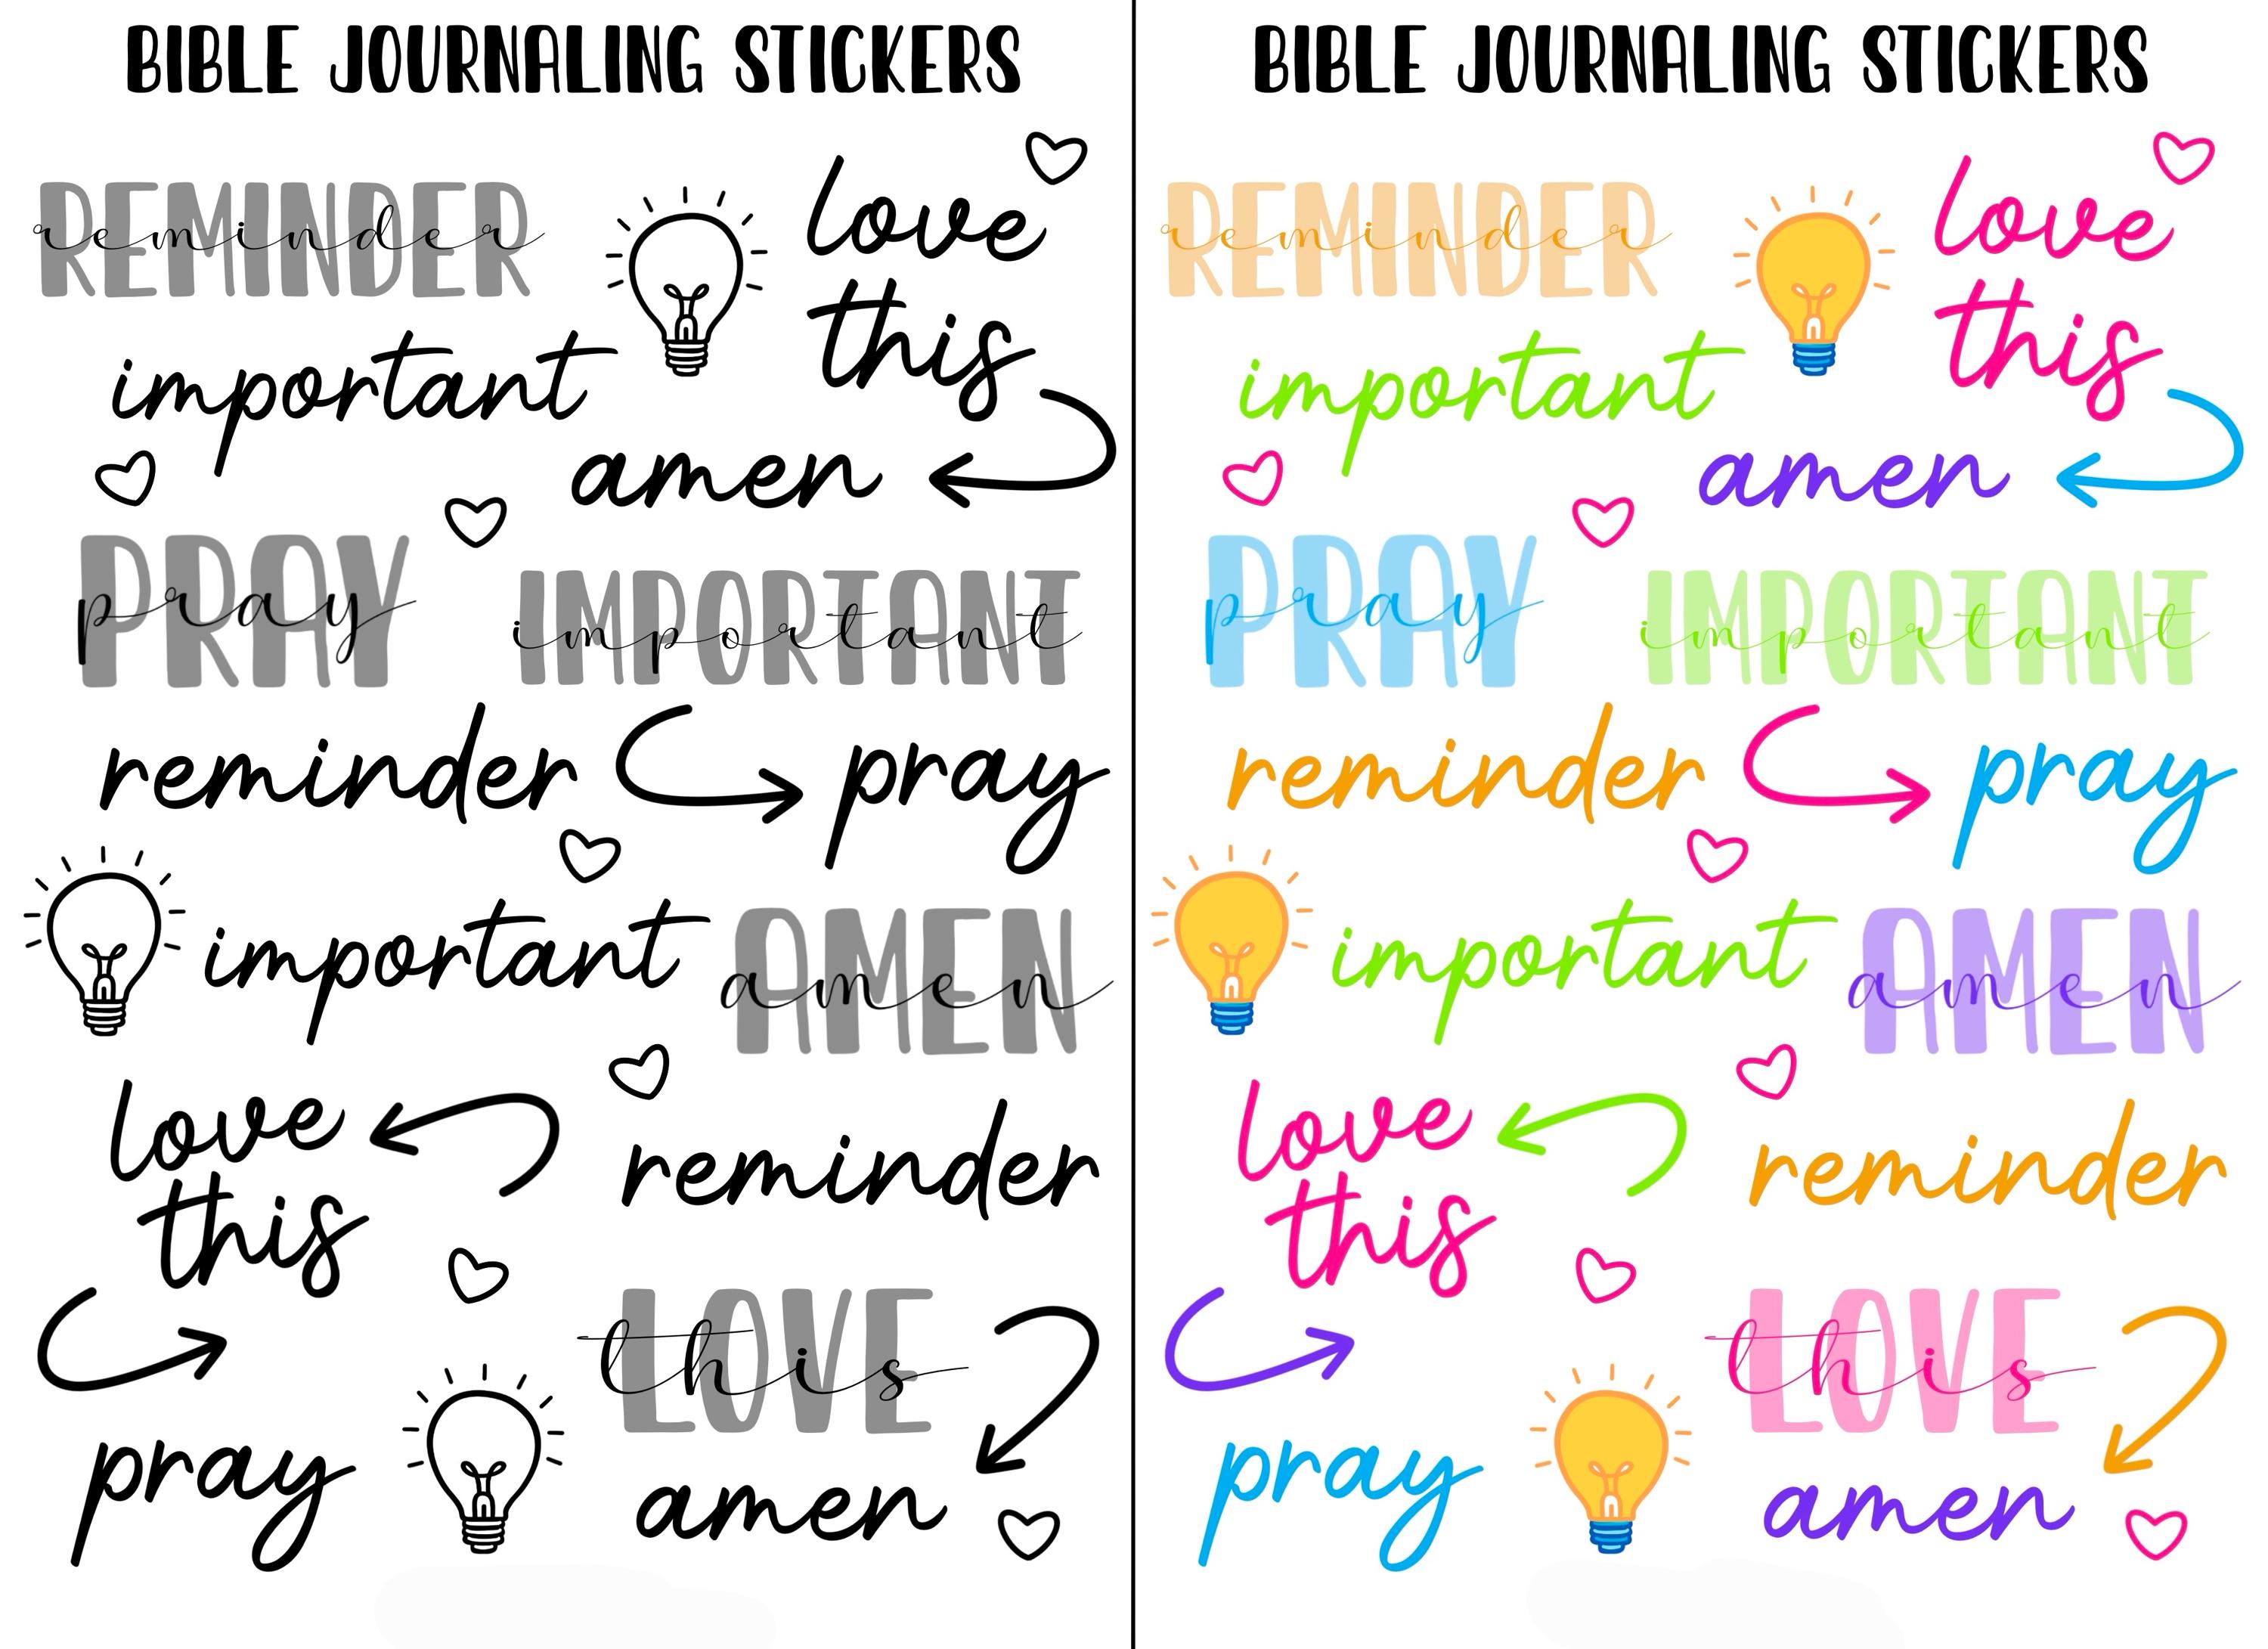 BIBLE JOURNALING STICKERS
REMINDER
reminder
love
this
important
amen
PRAY
pray
IMPORTANT
important
reminder
pray
important
AMEN
amen
love
this
reminder
LOVE
this
pray
amen
BIBLE JOURNALING STICKERS
REMINDER
reminder
love
this
important
amen
PRAY
pray
IMPORTANT
important
reminder
pray
important
AMEN
amen
love
this
reminder
LOVE
this
pray
amen